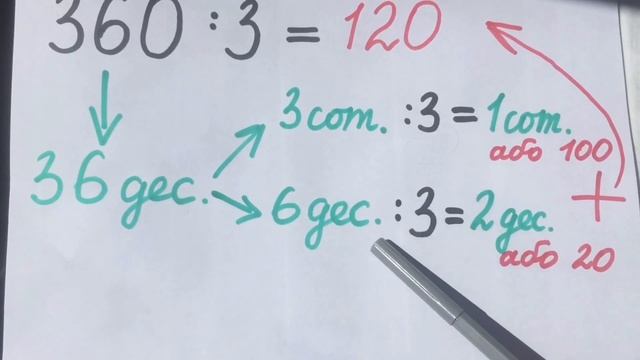 360 : 3 = 120
3 сот. : 3 = 1 сот.
або 100
36 дес.
6 дес. : 3 = 2 дес.
+
або 20